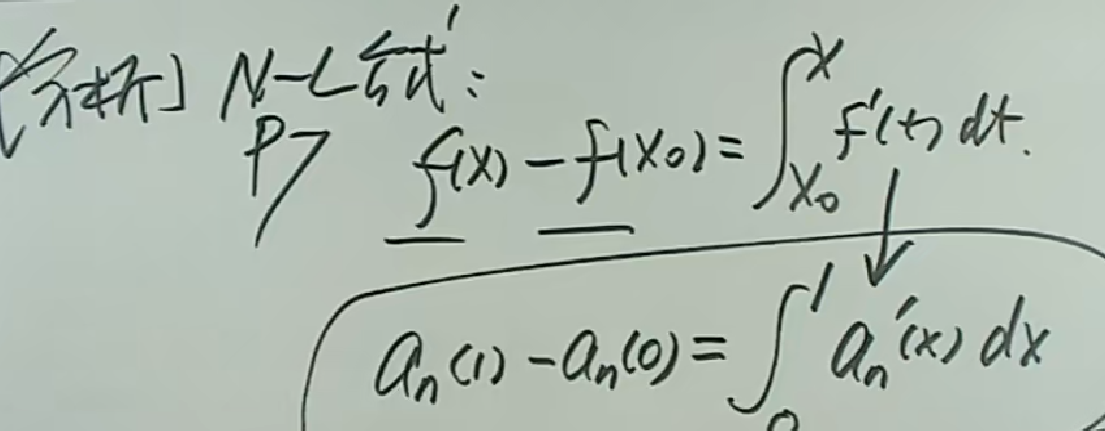 [分析] N-L公式:
P7 f(x) - f(x₀) = ∫_{x₀}^{x} f'(t) dt.
aₙ(1) - aₙ(0) = ∫_{0}^{1} aₙ'(x) dx